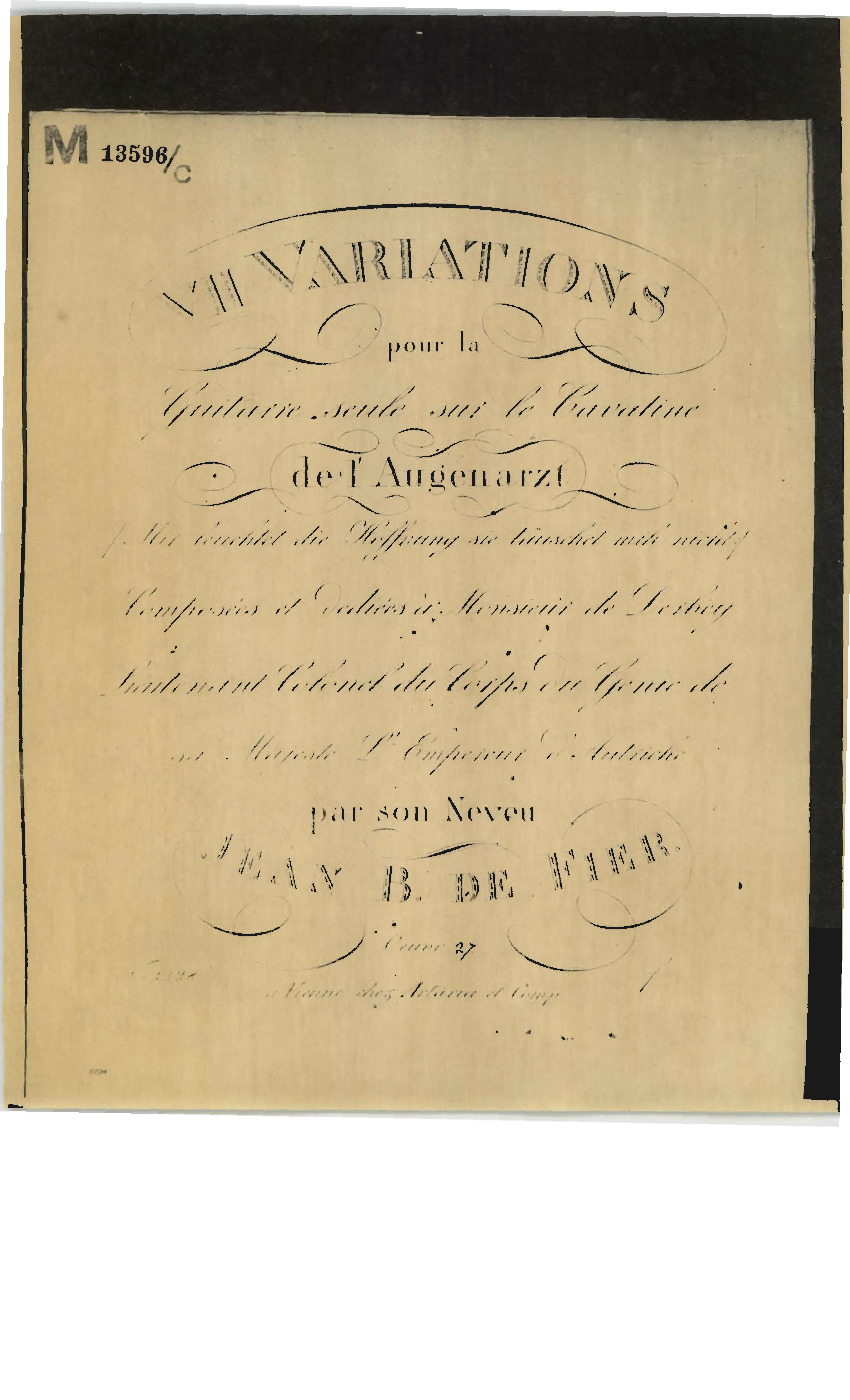 M 13596/C
VII VARIATIONS
pour la
Guitarre seule sur le Cavatine
de l'Augenarzt
(Mir leuchtet die Hoffnung sie täuschet mich nicht)
Composées et Dediées à Monsieur de
Lieutenant Colonel du Corps du Genie de
sa Majesté L'Empereur d'Autriche
par son Neveu
JEAN B. DE FIER.
Oeuvre 27
à Vienne chez Artaria et Comp.